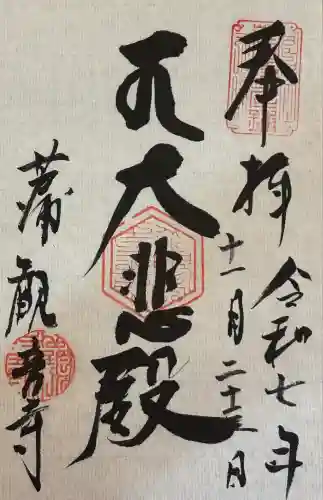 奉拝
令和七年
十一月二十三日
大悲殿
蒲観音寺